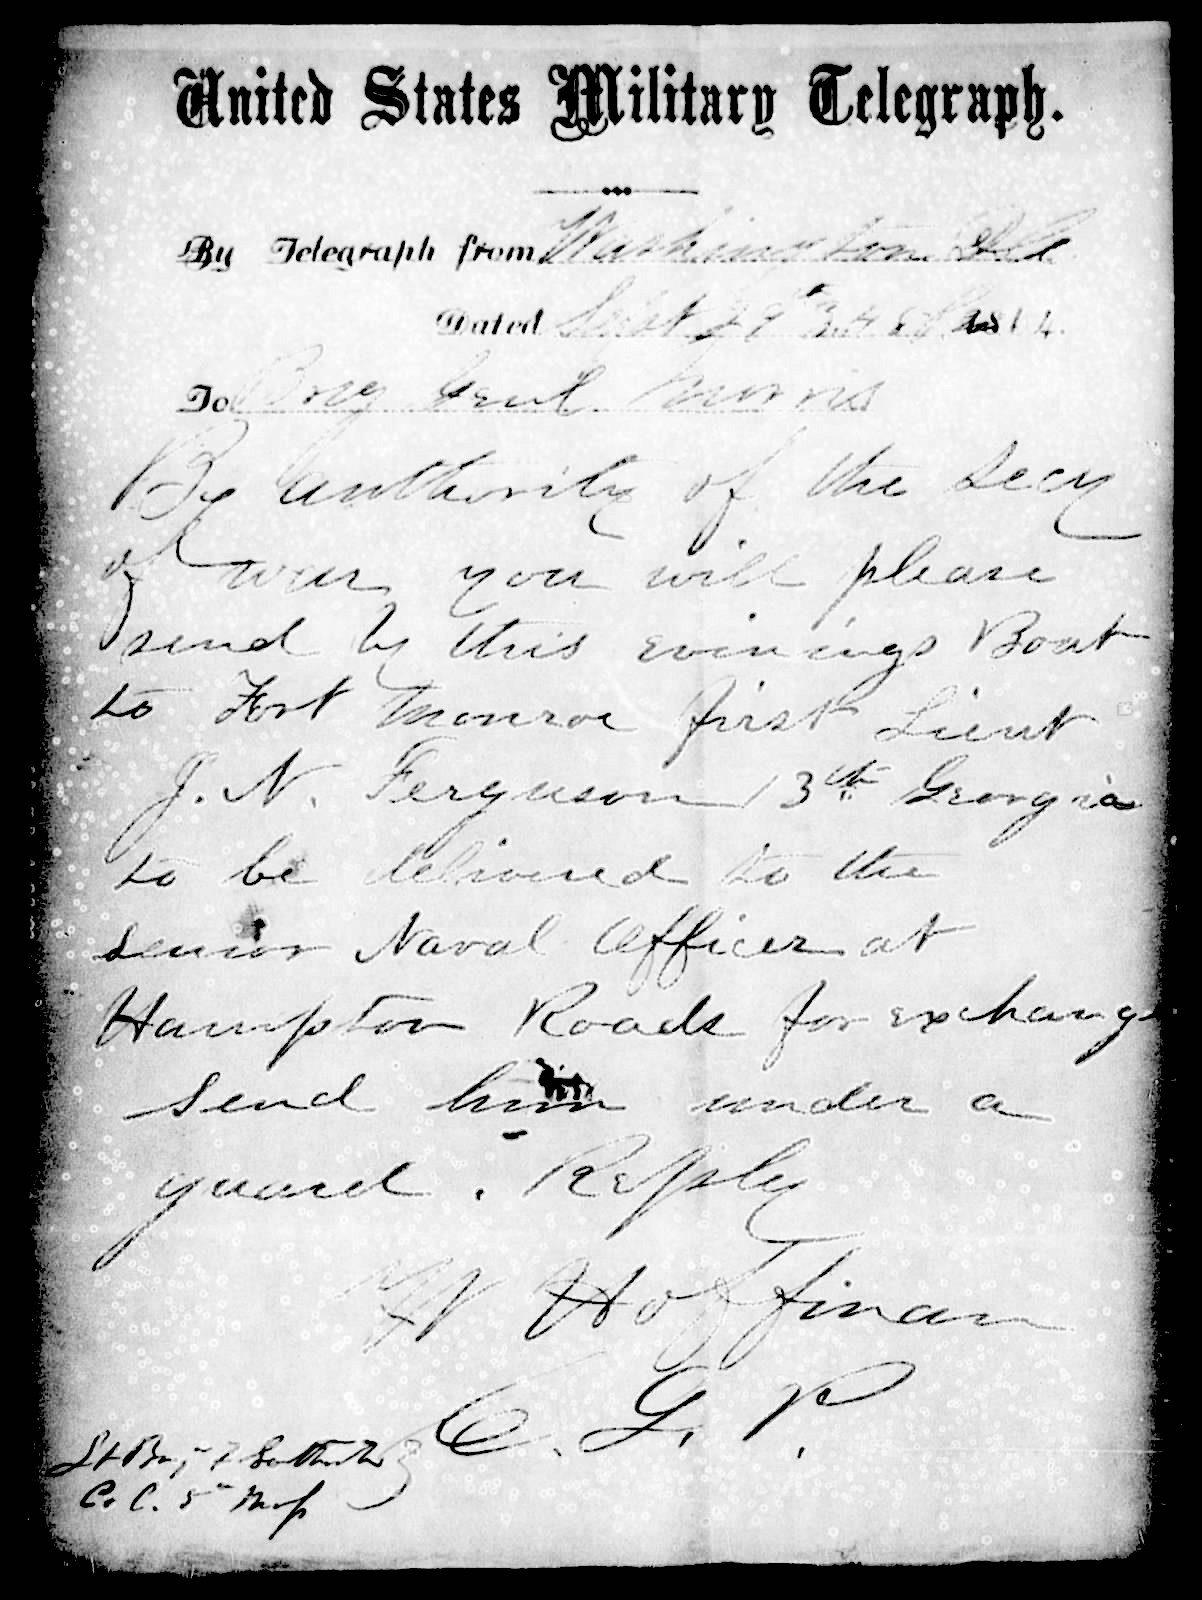 United States Military Telegraph.
By Telegraph from Washington
Dated Sept 1864.
To Brig Genl Morris
By Authority of the Secy
of war you will please
send by this evinings Boat
to Fort Monroe first Lieut
J. N. Ferguson 13th Georgia
to be delivered to the
senior Naval Officer at
Hampton Roads for exchange
Send him under a
guard. Reply
W Hoffman
C. G. P.
Lt
Co C. 5th